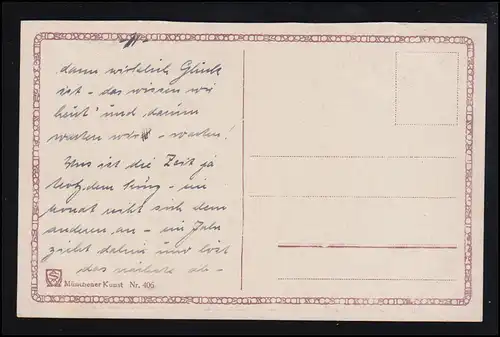 -II-
dann wirklich Glück
ist - das wissen wir
heut' und darum
warten wir - warten!
Uns ist die Zeit ja
trotzdem kurz - ein
Monat reiht sich dem
anderen an - ein Jahr
zieht dahin und löst
das nächste ab -
Münchener Kunst Nr. 406